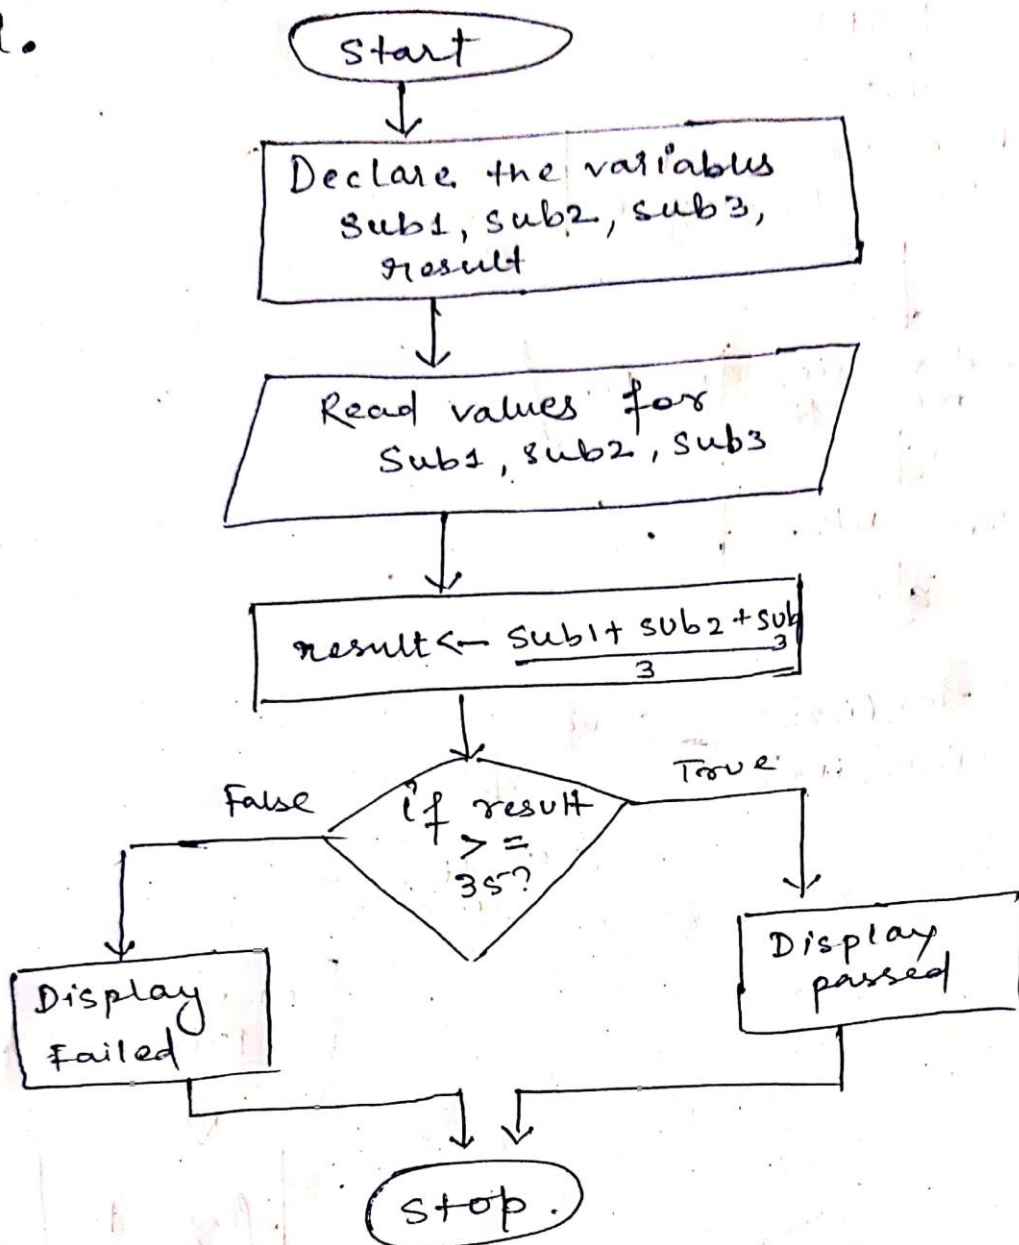 1.
Start
Declare the variables
sub1, sub2, sub3,
result
Read values for
Sub1, sub2, sub3
result <- Sub1 + sub2 + sub
3
3
if result
>=
35?
False
True
Display
Failed
Display
passed
stop.